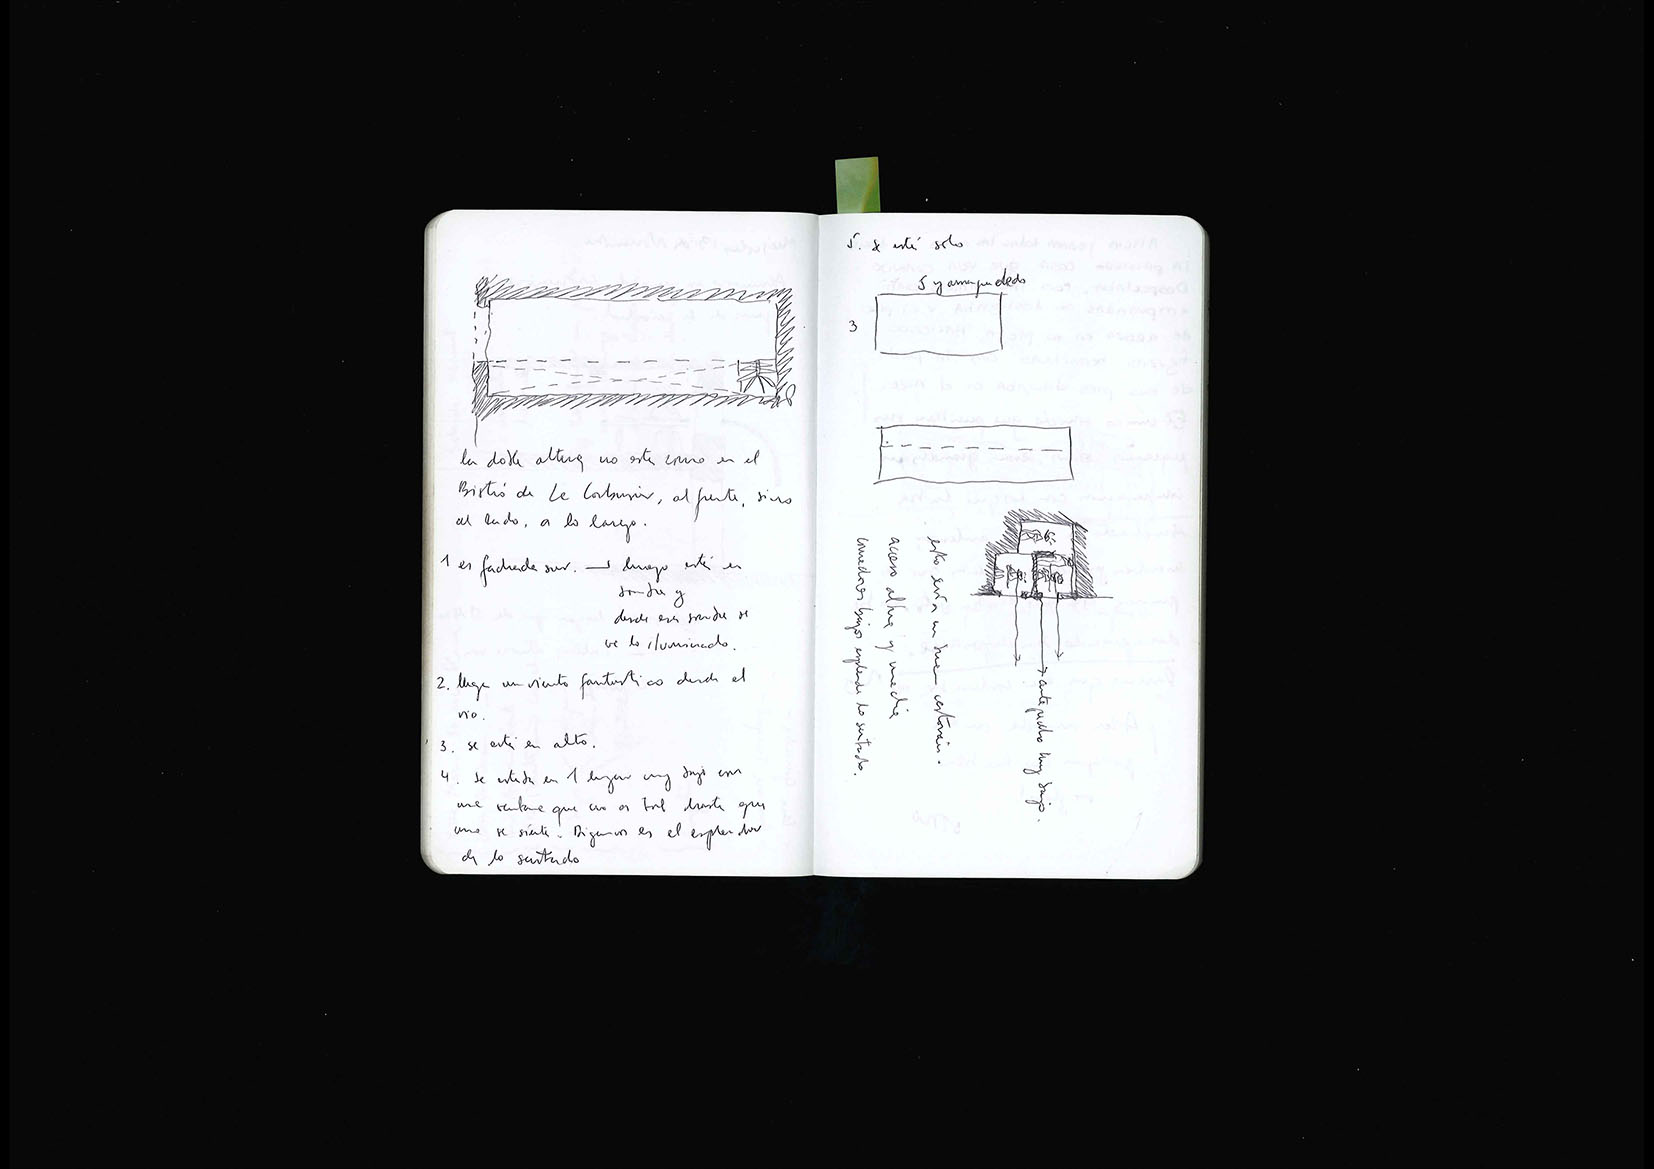 la doble altura no esta como en el
Bistró de Le Corbusier, al frente, sino
al lado, a lo largo.
1 es fachada sur. → luego está en
sombra y
desde esa sombra se
ve lo iluminado.
2. llega un viento fantastico desde el
rio.
3. se está en alto.
4. se estuda en 1 lugar muy bajo con
una ventana que no es tal hasta que
uno se sienta. Digamos es el esplendor
de lo sentado
5. se está solo
5 y arrequedado
3
esto sería un buen restorán.
acceso altura y media
comedores bajos esplendor lo sentado.
antepecho muy bajo.